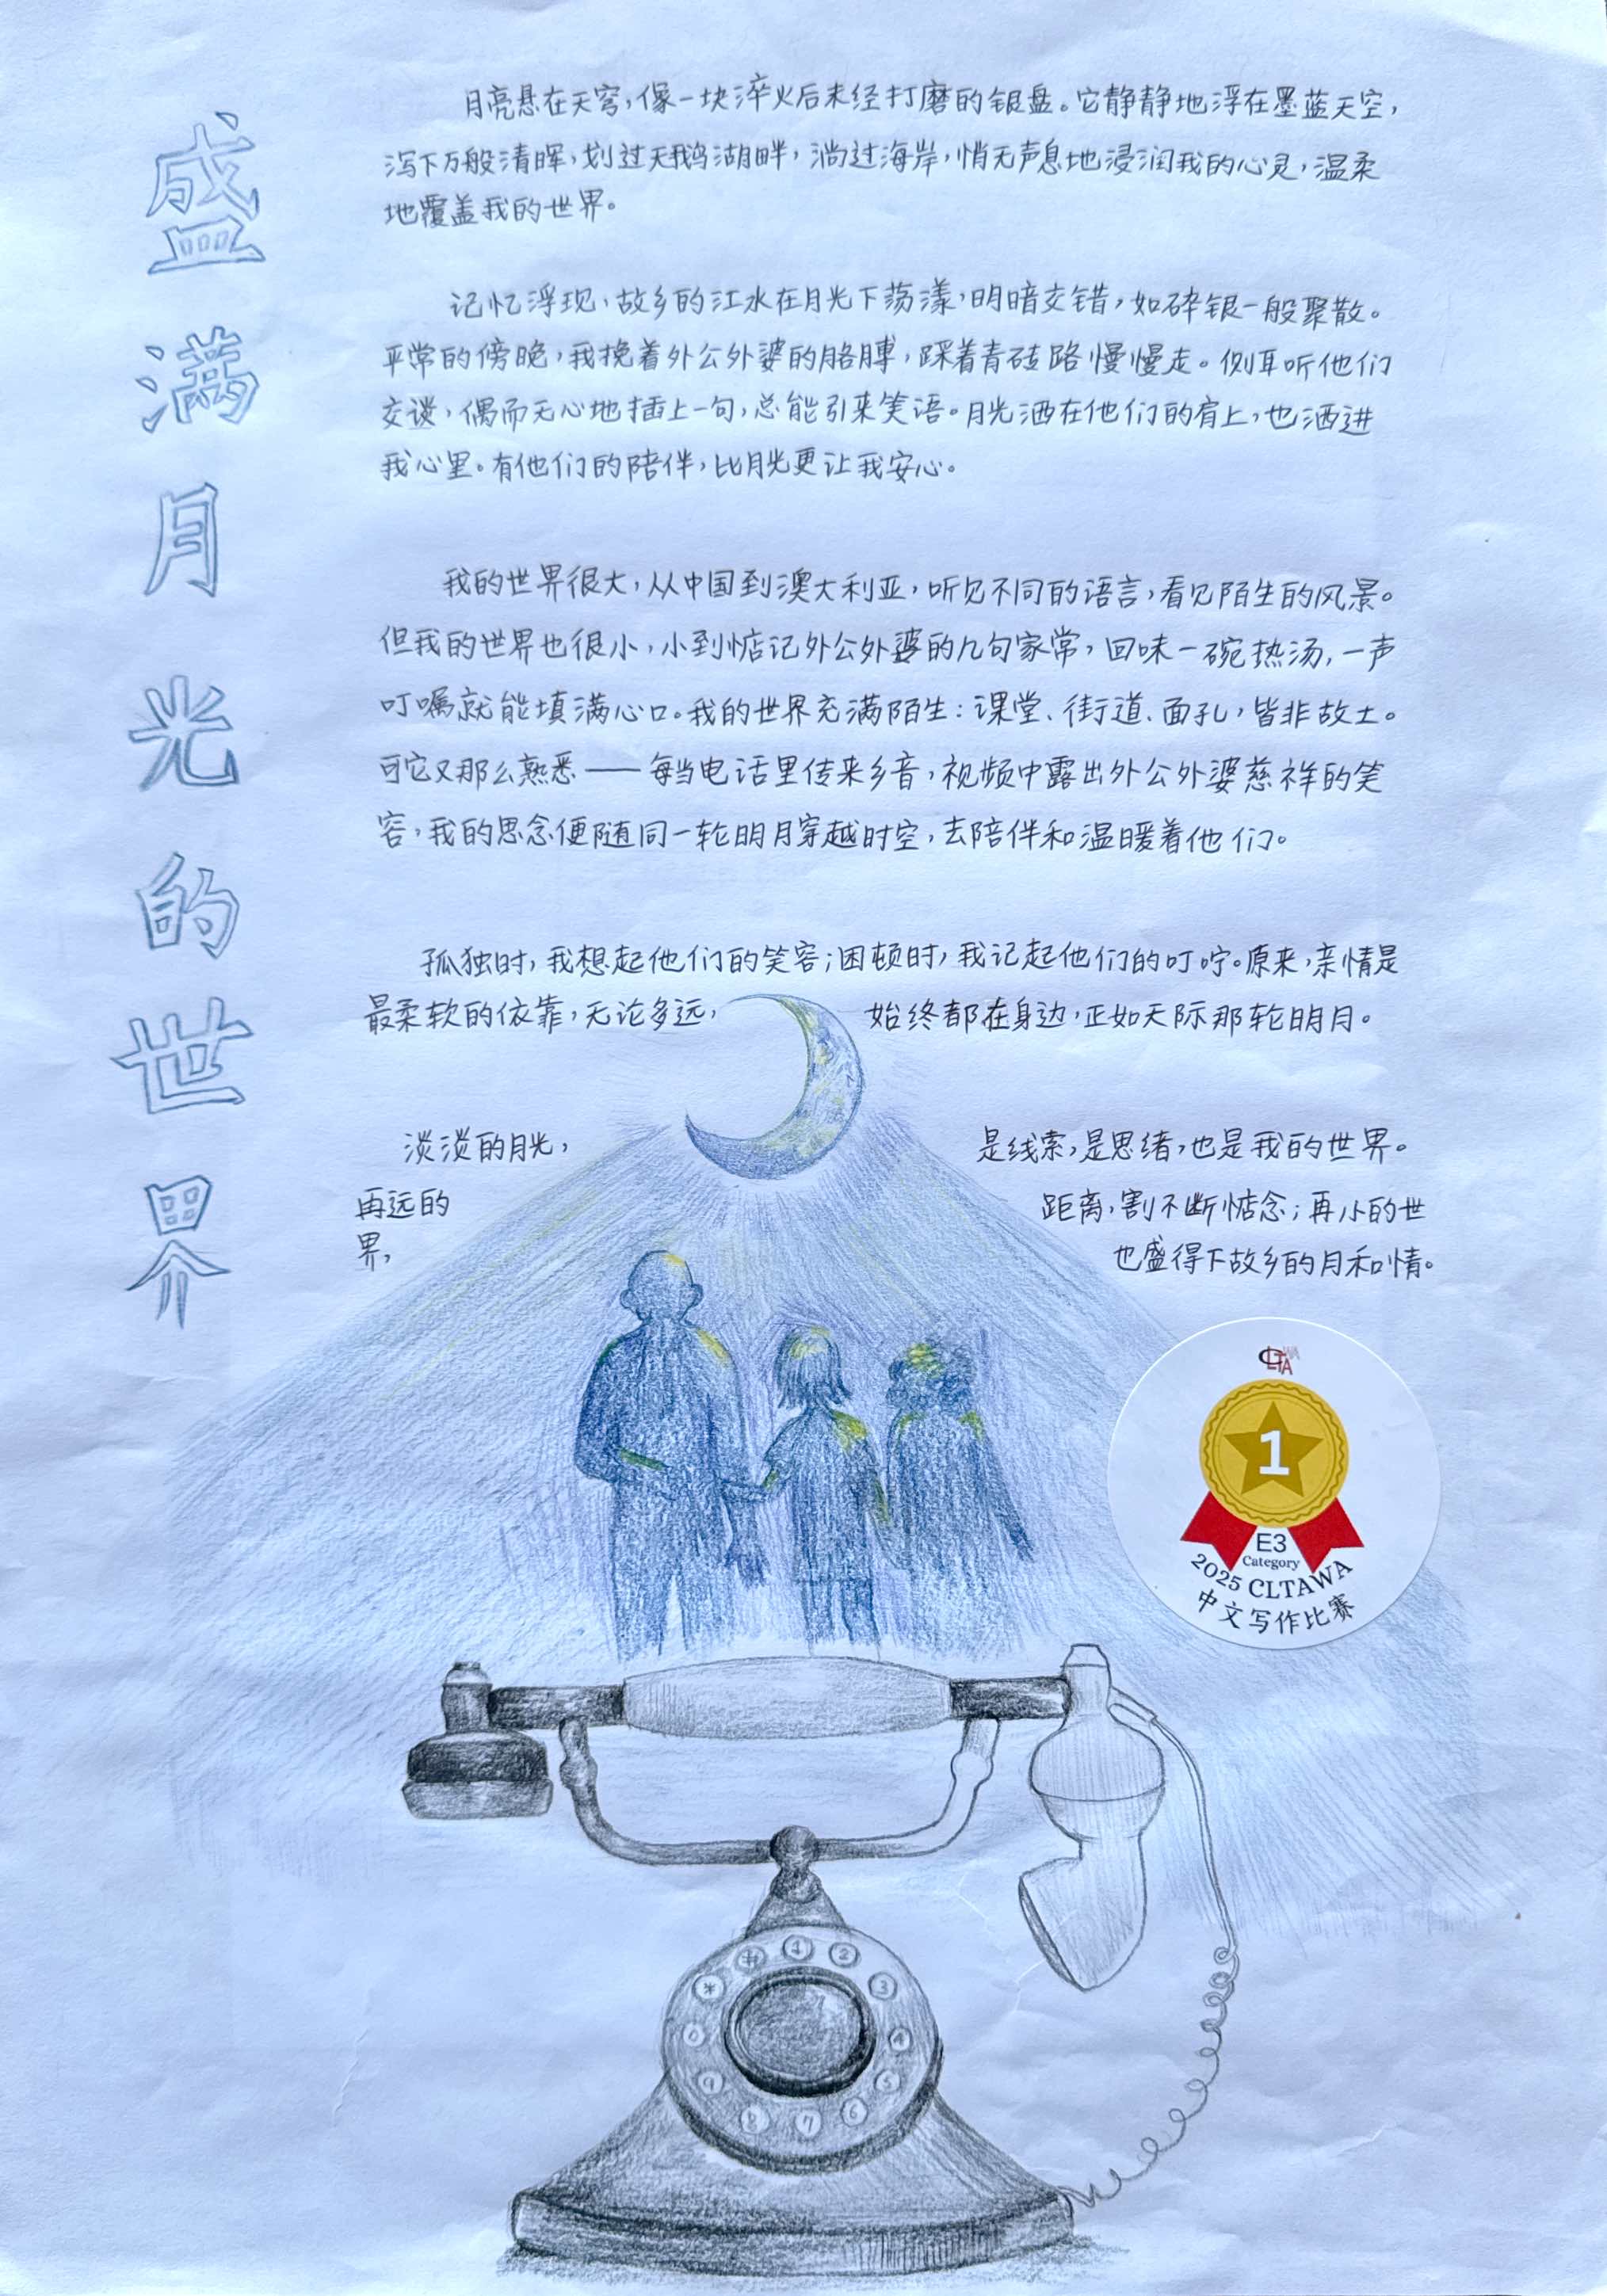 盛满月光的世界
月亮悬在天穹，像一块淬火后未经打磨的银盘。它静静地浮在墨蓝天空，
泻下万般清晖，划过天鹅湖畔，淌过海岸，悄无声息地浸润我的心灵，温柔
地覆盖我的世界。
记忆浮现，故乡的江水在月光下荡漾，明暗交错，如碎银一般聚散。
平常的傍晚，我挽着外公外婆的胳膊，踩着青砖路慢慢走。侧耳听他们
交谈，偶而无心地插上一句，总能引来笑语。月光洒在他们的肩上，也洒进
我心里。有他们的陪伴，比月光更让我安心。
我的世界很大，从中国到澳大利亚，听见不同的语言，看见陌生的风景。
但我的世界也很小，小到惦记外公外婆的几句家常，回味一碗热汤，一声
叮嘱就能填满心口。我的世界充满陌生：课堂、街道、面孔，皆非故土。
可它又那么熟悉——每当电话里传来乡音，视频中露出外公外婆慈祥的笑
容，我的思念便随同一轮明月穿越时空，去陪伴和温暖着他们。
孤独时，我想起他们的笑容；困顿时，我记起他们的叮咛。原来，亲情是
最柔软的依靠，无论多远，始终都在身边，正如天际那轮明月。
淡淡的月光，是线索，是思绪，也是我的世界。
再远的距离，割不断惦念；再小的世
界，也盛得下故乡的月和情。
CLTAWA
1
E3
Category
2025 CLTAWA
中文写作比赛
* # 1 2 3 4 5 6 7 8 9 0